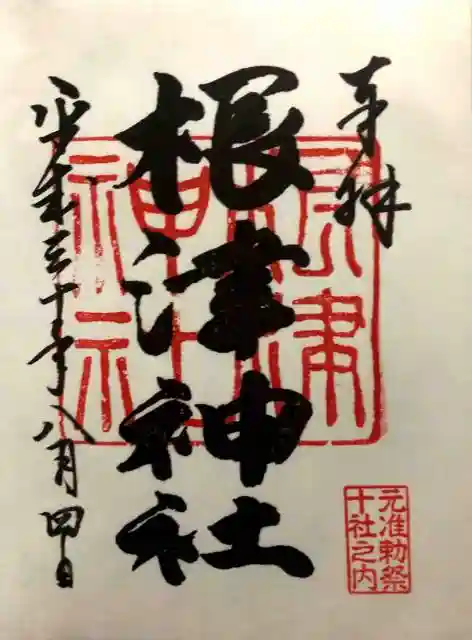 奉拝
根津神社
平成三十年八月四日
根津
神社
元准勅祭
十社之内